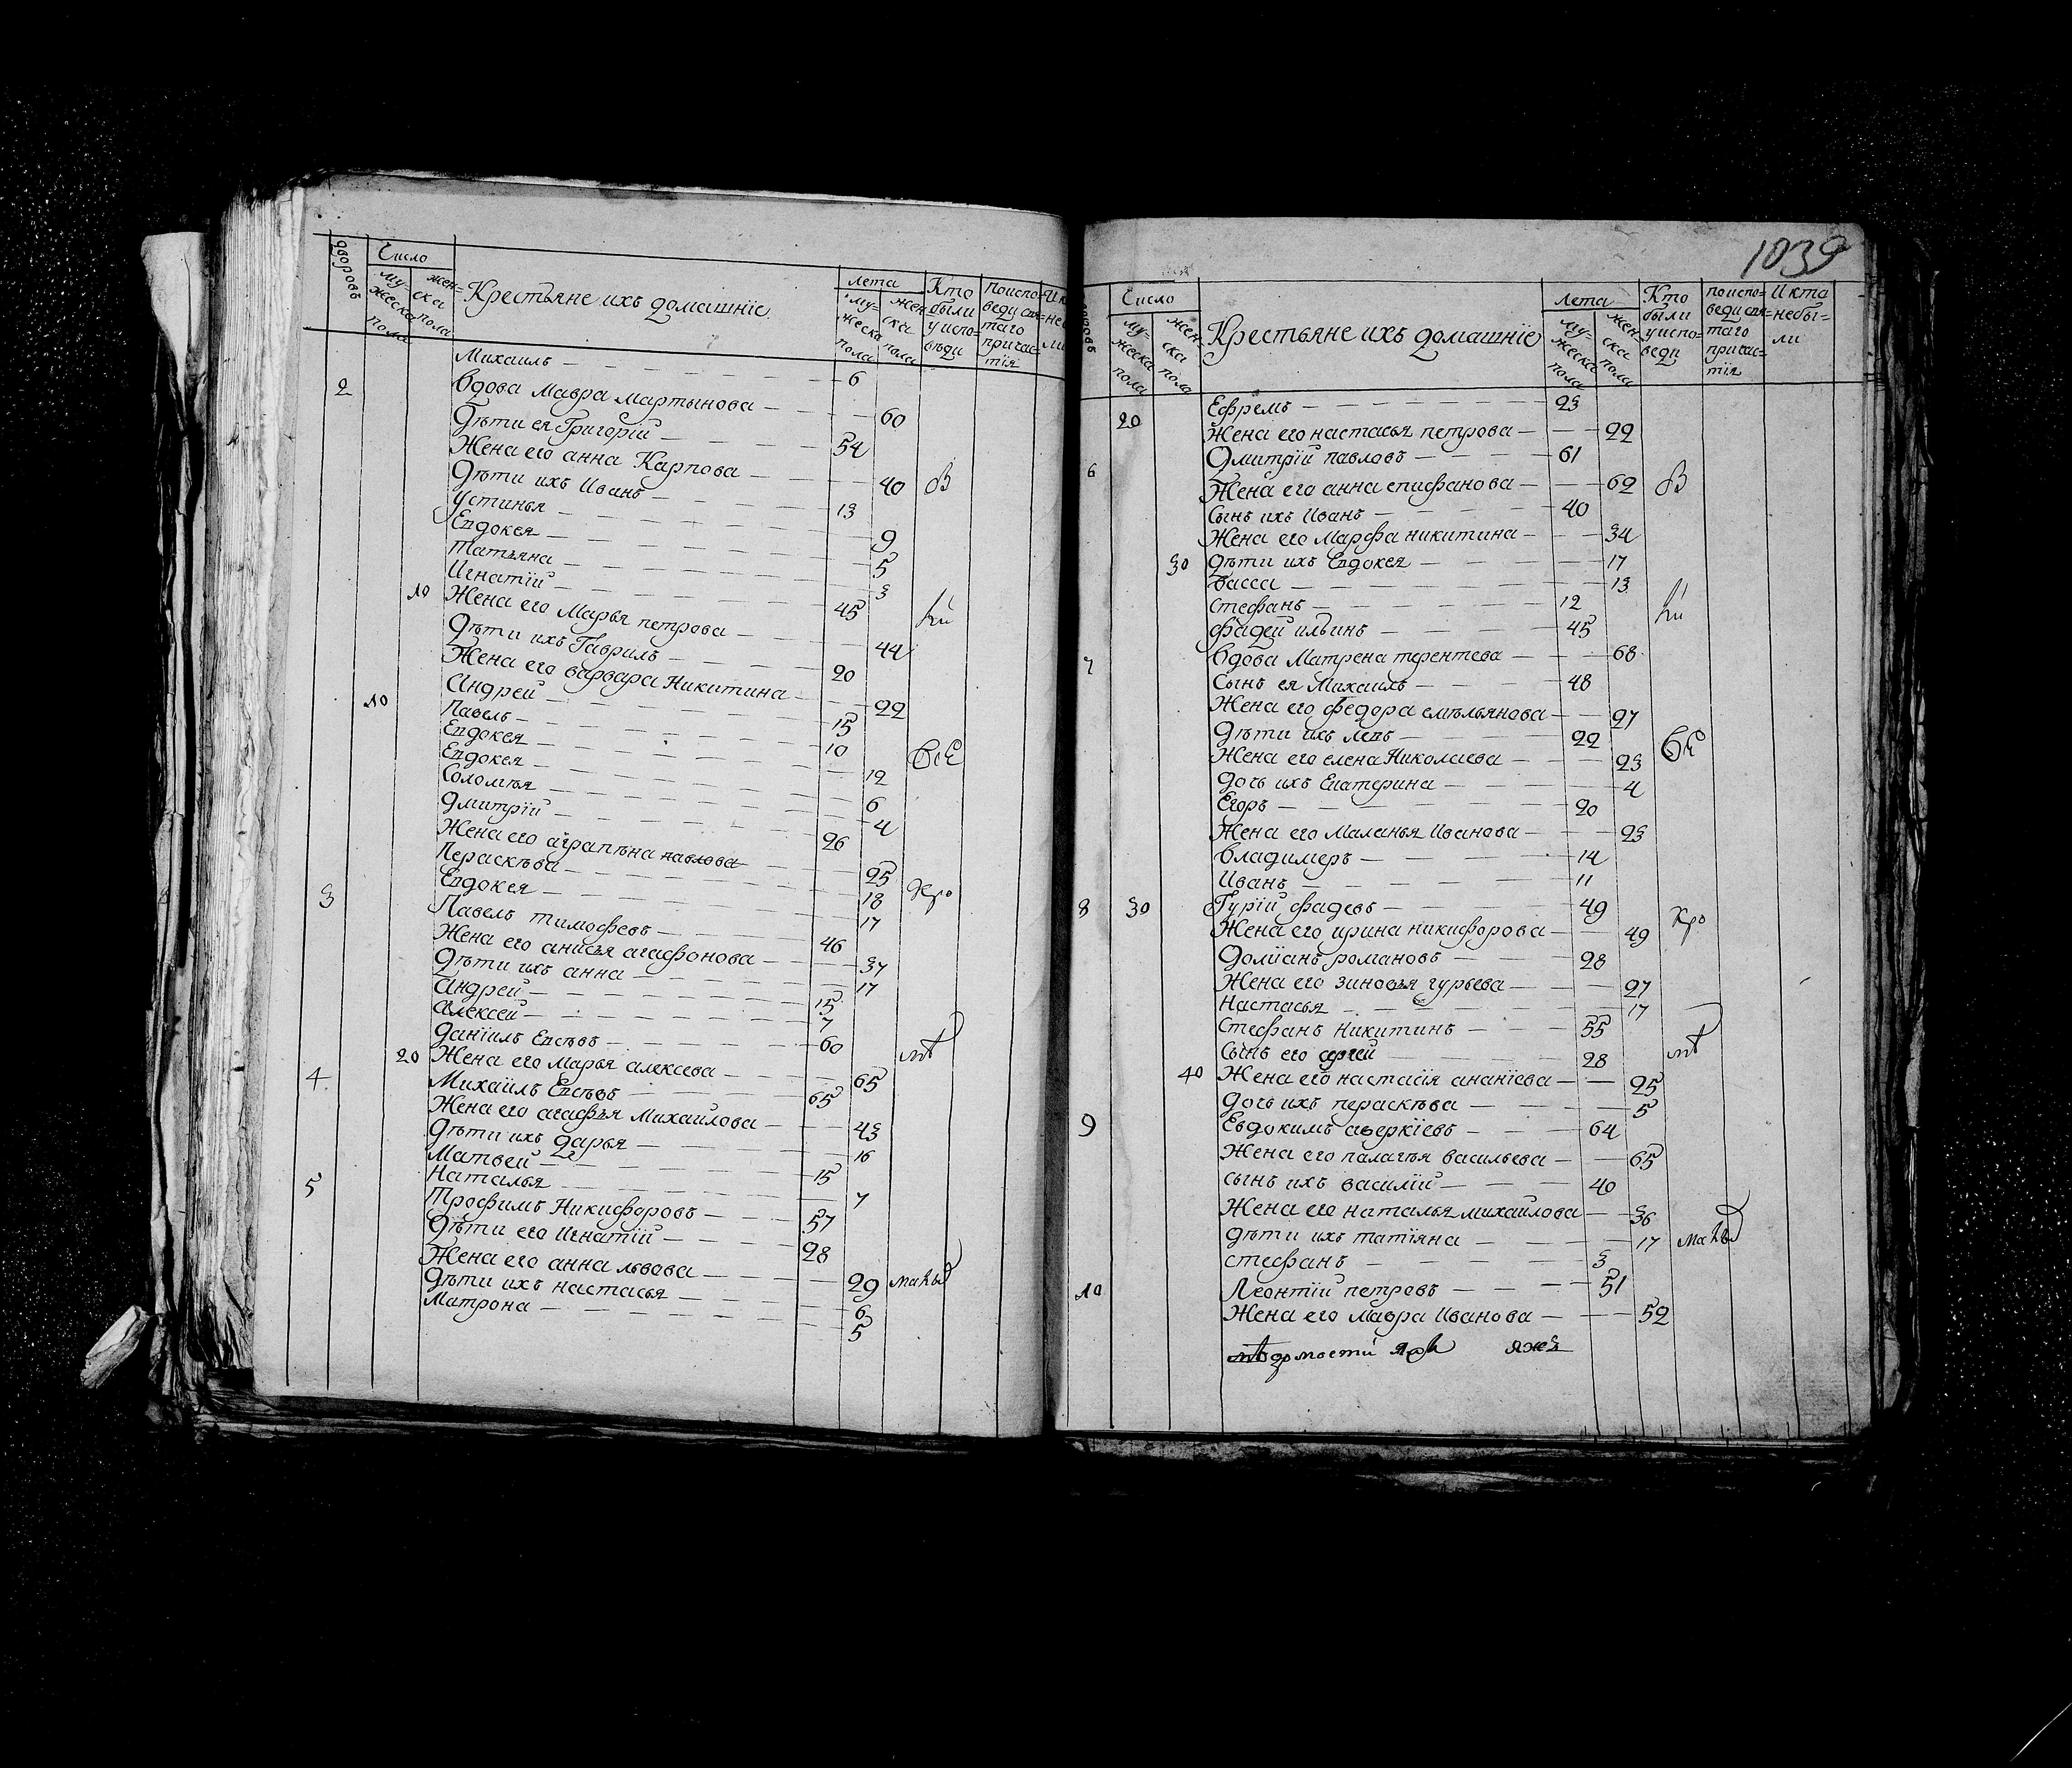 дворовъ
Число
мужеска пола
женска пола
Крестьяне ихъ домашнїе
лета
мужеска пола
женска пола
Кто были у исповѣди
поисповеди святаго причастїя
Михаилъ — 6
2 Вдова Мавра мартынова — 60
Дѣти ея Григорїй — 54
Жена его анна Карпова — 40 В
Дѣти ихъ Иванъ — 13
Устинья — 9
Евдокея — 5
Татьяна — 3
Игнатїй — 45
10 Жена его Марья петрова — 44
Дѣти ихъ Гаврилъ — 20
Жена его варвара Никитина — 22
10 Андрей — 15
Павелъ — 10
Евдокея — 12
Евдокея — 6
Соломея — 4
Дмитрїй — 26
Жена его аграпѣна павлова — 25
Пераскѣва — 18
Евдокея — 17
3 Павелъ тимофевъ — 46
Жена его анисья агафонова — 37
Дѣти ихъ анна — 17
Андрей — 15
Алексей — 7
Данїилъ Евсѣвъ — 60
20 Жена его Марья алексева — 65
4 Михаилъ Евсѣвъ — 65
Жена его агафья Михаилова — 43
Дѣти ихъ дарья — 16
Матвей — 15
Наталья — 7
5 Трофимъ Никифоровъ — 57
Дѣти его Игнатїй — 28
Жена его анна львова — 29
Дѣти ихъ настасья — 6
Матрона — 5
1039
Число
мужеска пола
женска пола
Крестьяне ихъ домашнїе
Лета
мужеска пола
женска пола
Кто были у исповеди
поисповеди святаго причастїя
И кто небыли
20 Ефремъ — 23
Жена его настасья петрова — 22
6 Дмитрїй павловъ — 61
Жена его анна епифанова — 62 В
Сынъ ихъ Иванъ — 40
Жена его Марфа никитина — 34
30 Дѣти ихъ Евдокея — 17
васса — 13
стефанъ — 12
фадей ильинъ — 45
7 Вдова Матрена терентева — 68
Сынъ ея Михаилъ — 48
Жена его федора емѣльянова — 27
Дѣти ихъ левъ — 22
Жена его елена Николаева — 23
дочь ихъ Екатерина — 4
Егоръ — 20
Жена его Маланья Иванова — 23
Владимеръ — 14
Иванъ — 11
8 30 Гурїй фадевъ — 49
Жена его ирина никифорова — 49
романовъ — 28
Жена его зиновья гурьева — 27
Настасья — 17
Стефанъ Никитинъ — 55
Сынъ его сергей — 28
40 Жена его настасїя ананїева — 25
дочь ихъ пераскѣва — 5
9 Евдокимъ аверкїевъ — 64
Жена его палагья васильева — 65
сынъ ихъ василїй — 40
Жена его наталья михаилова — 36
дѣти ихъ татїяна — 17
стефанъ — 3
10 Леонтїй петровъ — 51
Жена его мавра Иванова — 52